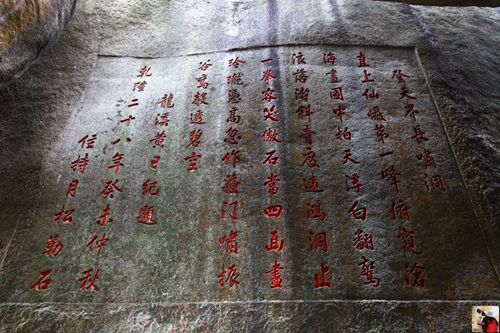 登天界長嘯洞
直上仙巖第一峰俯窺滄
海畫圖中拍天浮白翻驚
浪落斜青應遠鴻洞止
一拳容笑傲石當四面盡
玲瓏憑高忽作蘇門嘯振
谷鸞聲透碧空
龍溪黃日紀題
乾隆二十八年癸未仲秋
住持月松勒石